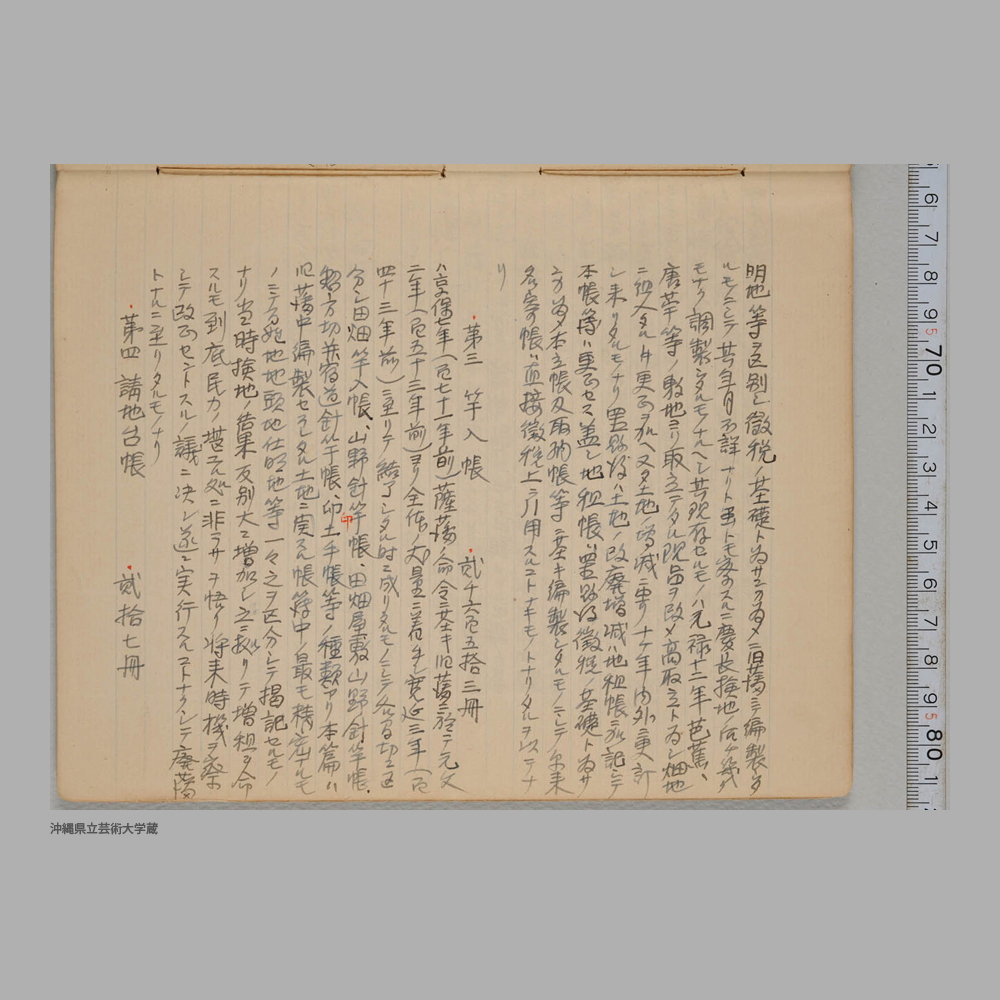 明地等ヲ区別シ徴税ノ基礎ト為サンカ為メニ旧藩ニテ編製シタ
ルモノニシテ其年月不詳ナリト雖トモ察スルニ慶長検地ノ后チ幾
モナク調製シタルモノナルヘシ其現存セルモノハ元禄十二年芭蕉、
唐苧等ノ敷地ヨリ取立テタル現品ヲ改メ高取立ト為シ畑地
ニ組入タル片更正ヲ加ヘ又タ土地ノ増減ニ重ノ十ケ年内外ニ更訂
シ来リタルモノナリ置県後ハ土地ノ改廃増減ハ地租帳ニ加記シテ
本帳等ハ更正セス蓋シ地租帳ハ置県後徴税ノ基礎ト為サ
ン為メ本立帳及取納帳等ニ基キ編製シタルモノニシテ尓来
名寄帳ハ直接徴税上ニ引用スルコトナキモノトナリタルヲ以テナ
リ
第三 竿入帳 貳千六百五拾三冊
ハ享保七年(百七十一年前)薩藩ノ命令ニ基キ旧藩ニ於テ元文
二年(百五十三年前)ヨリ全体ノ丈量ニ着手シ寛延三年(百
四十三年前)ニ至リテ結了シタル時ニ成リタルモノニシテ今尚切正
分シ田畑竿入帳、山野針竿帳、田畑屋敷山野針竿帳、
竪方切并宿道針竿帳、印土手帳等ノ種類アリ本篇ハ
旧藩中編製セラレタル土地ニ関スル帳簿中ノ最モ精密ナルモ
ノニシテ百姓地地頭地仕明地等一々之ヲ区分シテ掲記セルモノ
ナリ当時検地ノ結果反別大ニ増加シ之ニ拠リテ増租ヲ命
スルモ到底民力ノ堪エル処ニ非ラサルヲ悟リ将来時機ヲ察
シテ改正セントスルノ議ニ决シ遂ニ実行スルコトナクシテ廃藩
トナルニ至リタルモノナリ
第四 請地台帳 貳拾七冊
6 7 8 9 70 1 2 3 4 5 6 7 8 9 80 1
沖縄県立芸術大学蔵